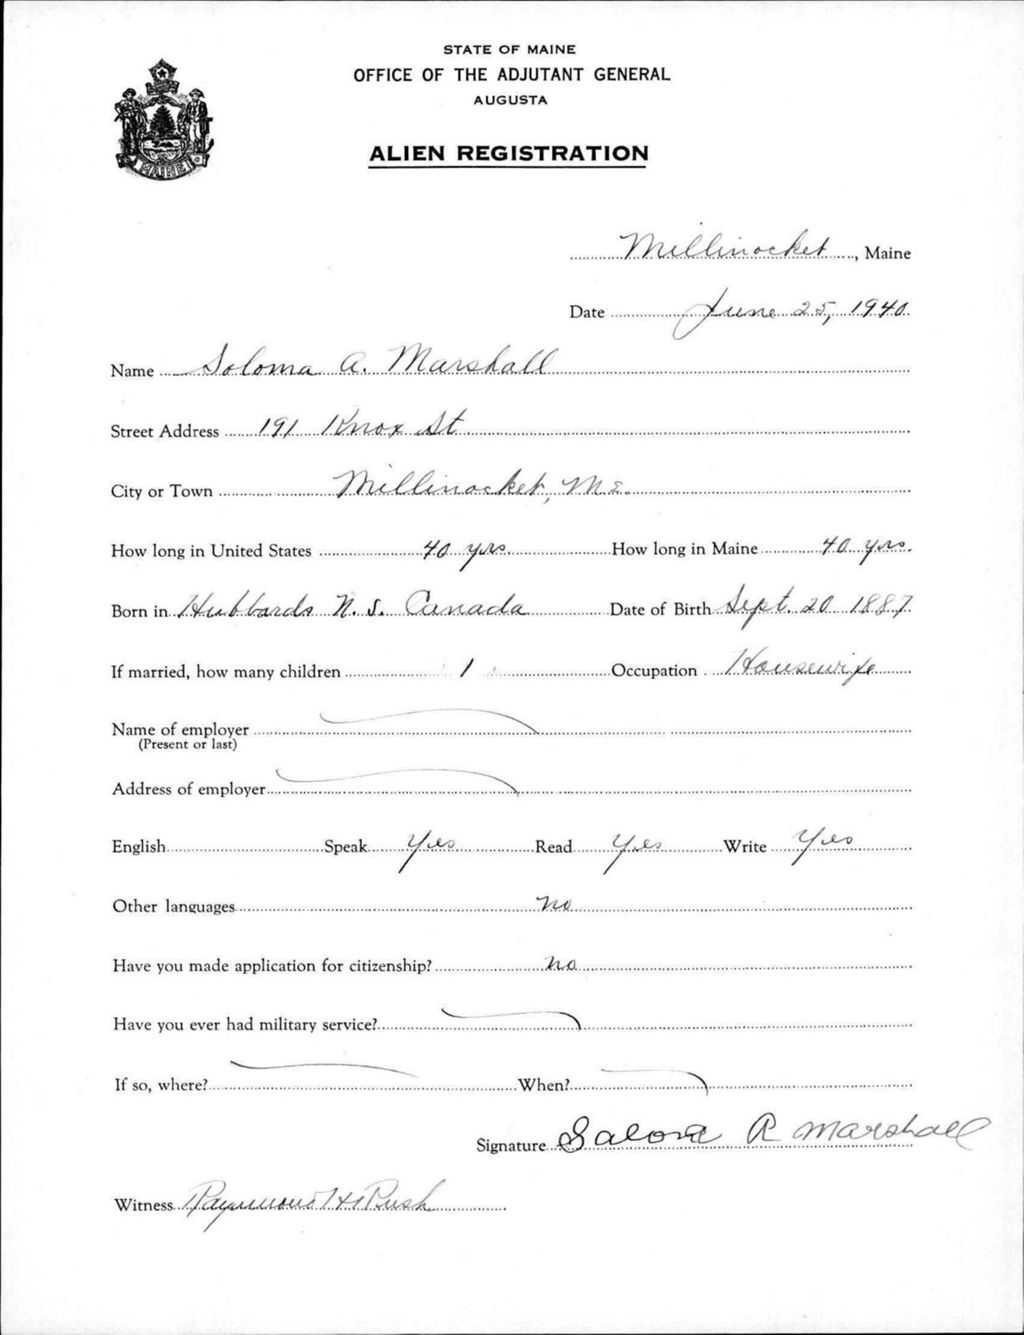 STATE OF MAINE
OFFICE OF THE ADJUTANT GENERAL
AUGUSTA
ALIEN REGISTRATION
MAINE
Millinocket, Maine
Date June 25, 1940
Name Soloma A. Marshall
Street Address 191 Knox St
City or Town Millinocket, Me.
How long in United States 40 yrs How long in Maine 40 yrs.
Born in Hubbards N.S. Canada Date of Birth Sept. 20 1887
If married, how many children 1 Occupation Housewife
Name of employer
(Present or last)
Address of employer
English Speak Yes Read Yes Write Yes
Other languages no
Have you made application for citizenship? no
Have you ever had military service?
If so, where? When?
Signature Marshall
Witness Raymond H Rush